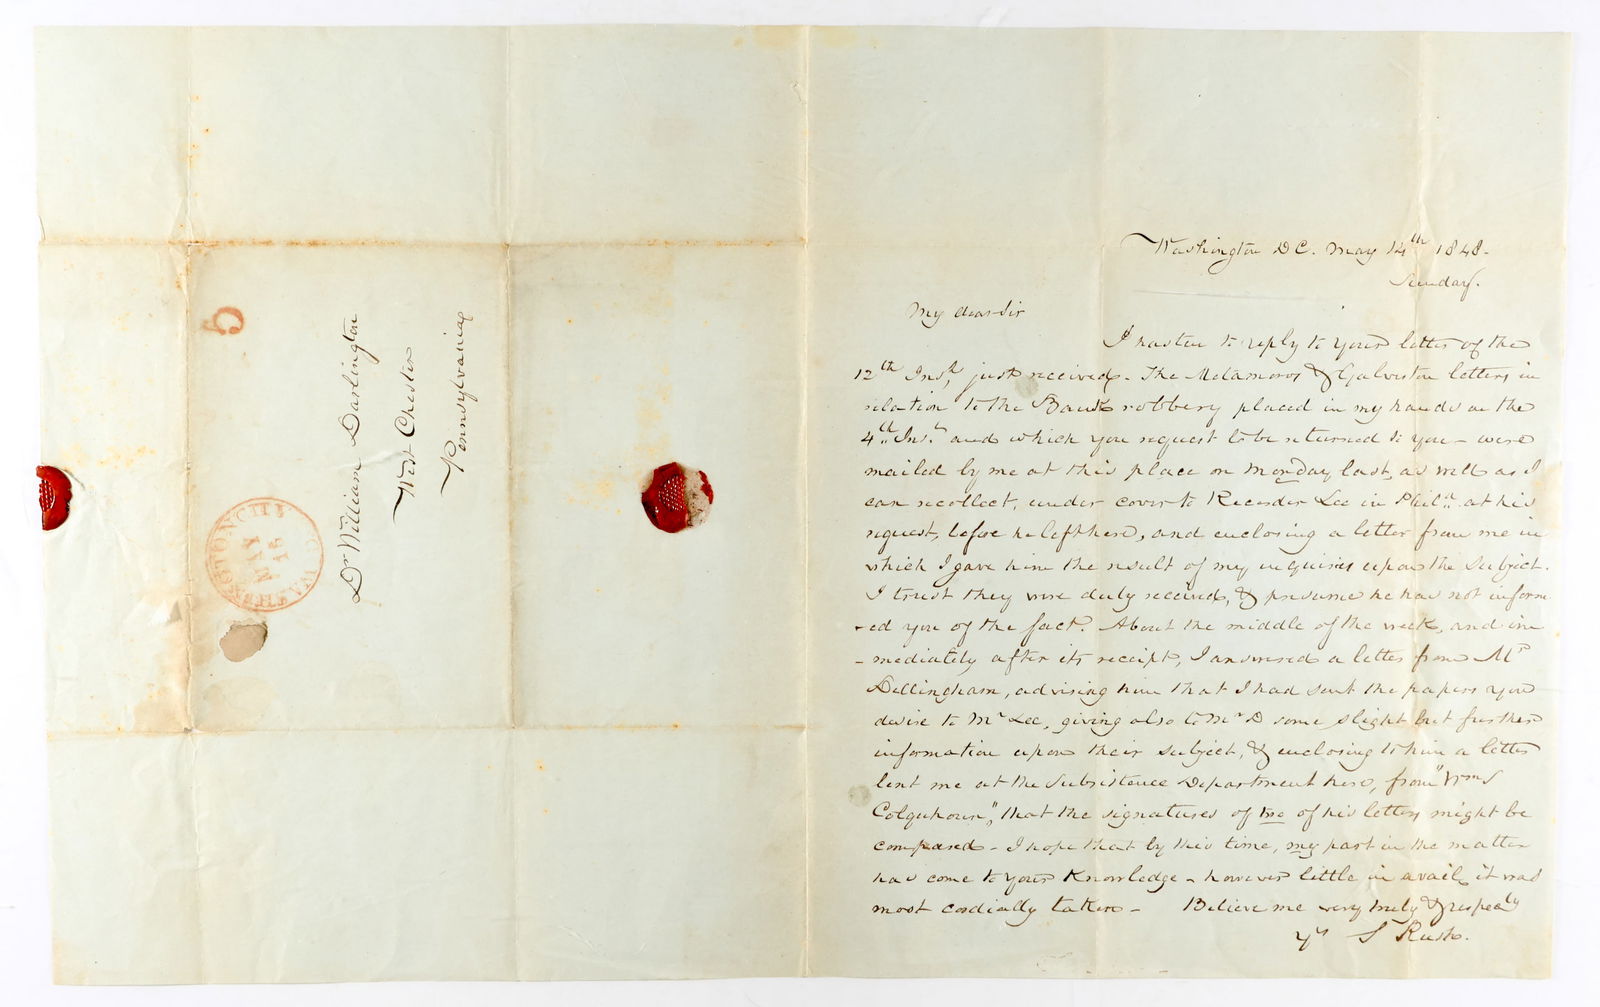 5
WASHINGTON CITY
MAY
15
Dr William Darlington
West Chester
Pennsylvania
Washington DC. May 14th 1848.
Sunday.
My dear Sir
I hasten to reply to your letter of the
12th Inst, just received. The Matamoros & Galveston letters in
relation to the Bank robbery placed in my hands on the
4th Inst. and which you request to be returned to you - were
mailed by me at this place on Monday last, as well as I
can recollect, under cover to Recorder Lee in Phila. at his
request, before he left here, and enclosing a letter from me in
which I gave him the result of my inquiries upon the subject.
I trust they were duly received, & presume he has not inform
-ed you of the fact. About the middle of the week, and im
-mediately after its receipt, I answered a letter from Mr
Dillingham, advising him that I had sent the papers you
desire to Mr Lee, giving also to Mr D some slight but further
information upon their subject, & enclosing to him a letter
lent me at the Subsistence Department here, from "Wm S
Colquhoun", that the signatures of two of his letters might be
compared - I hope that by this time, my part in the matter
has come to your knowledge - however little in avail, it was
most cordially taken - Believe me very truly & respecly
yrs S Rush.